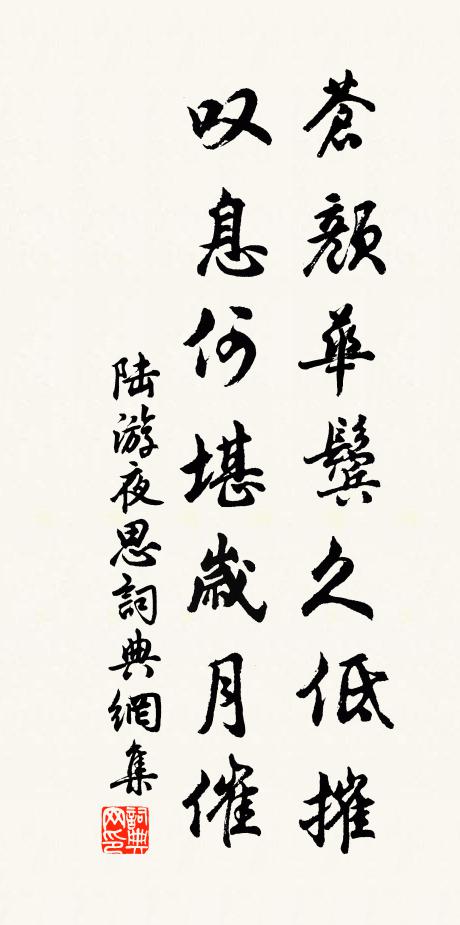 苍颜华鬓久低摧
叹息何堪岁月催
陆游夜思詞典網集
詞典网印